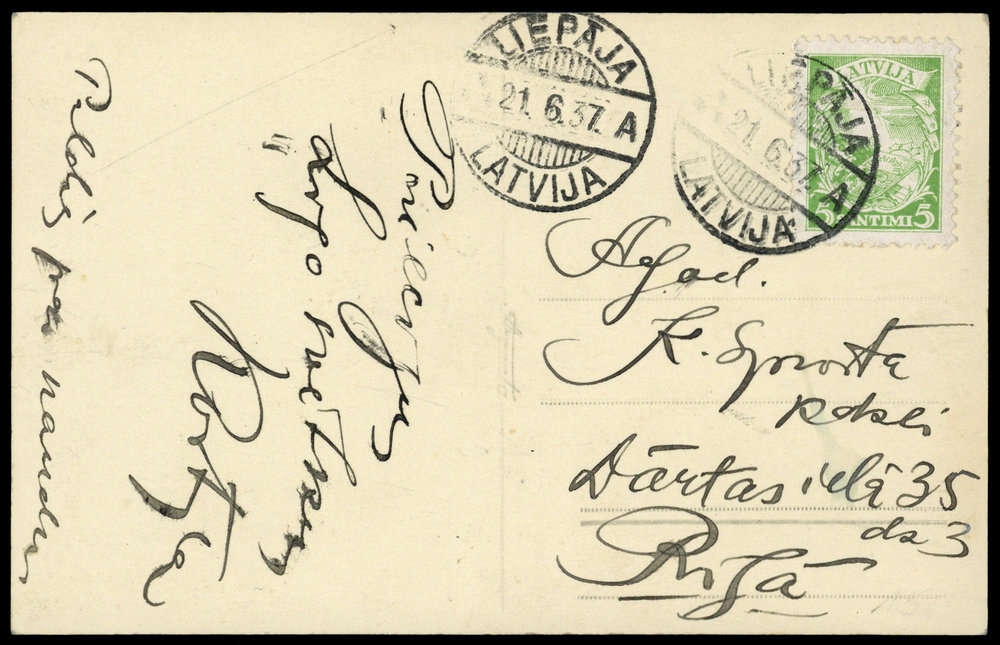 LIEPĀJA
21. 6. 37. A
LATVIJA
LIEPĀJA
21. 6. 37. A
LATVIJA
LATVIJA
5 SANTIMI 5
Priecīgus
Līgo svētkus
Paldies par
Agad.
K. Sprosta
kdzei
Dārtas ielā 35
dz 3
Rīgā